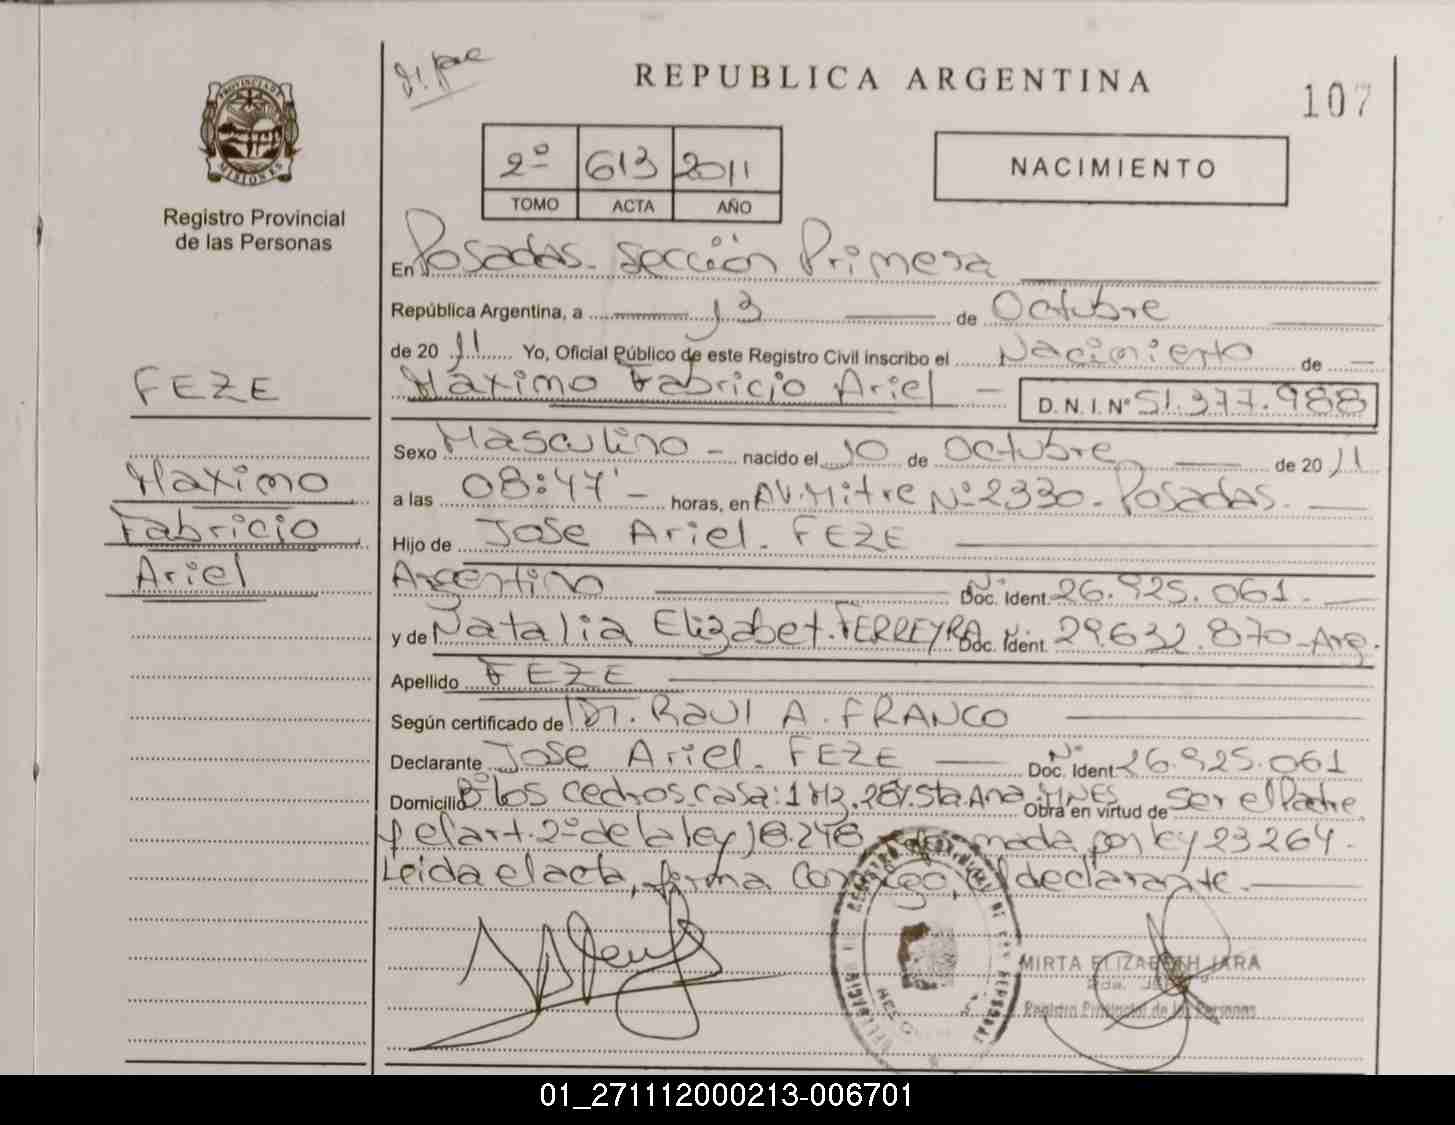 REPUBLICA ARGENTINA
107
PROVINCIA DE MISIONES
Registro Provincial
de las Personas
2º 613 2011
TOMO ACTA AÑO
NACIMIENTO
En Posadas. Sección Primera
República Argentina, a 13 de Octubre
de 2011 Yo, Oficial Público de este Registro Civil inscribo el Nacimiento de
FEZE
Máximo Fabricio Ariel - D. N. I. Nº 51.377.988
Sexo Masculino - nacido el 10 de Octubre de 2011
Maximo
Fabricio
Ariel
a las 08:47' - horas, en AV. Mitre Nº 2330. Posadas.
Hijo de Jose Ariel. FEZE
Argentino Doc. Ident. Nº 26.925.061.
y de Natalia Elizabet. FERREYRA Doc. Ident. Nº 29.632.870 - Arg.
Apellido FEZE
Según certificado de Dr. Raul A. FRANCO
Declarante Jose Ariel. FEZE Doc. Ident. Nº 26.925.061
Domicilio Bº los cedros casa: 1 Mz. 28. Sta. Ana MNES Obra en virtud de Ser el Padre
y el art. 2º de la ley 18.248 por ley 23264.
Leida el acta, firma conmigo, el declarante.
MIRTA ELIZABETH JARA
Registro Provincial de las Personas
01_271112000213-006701